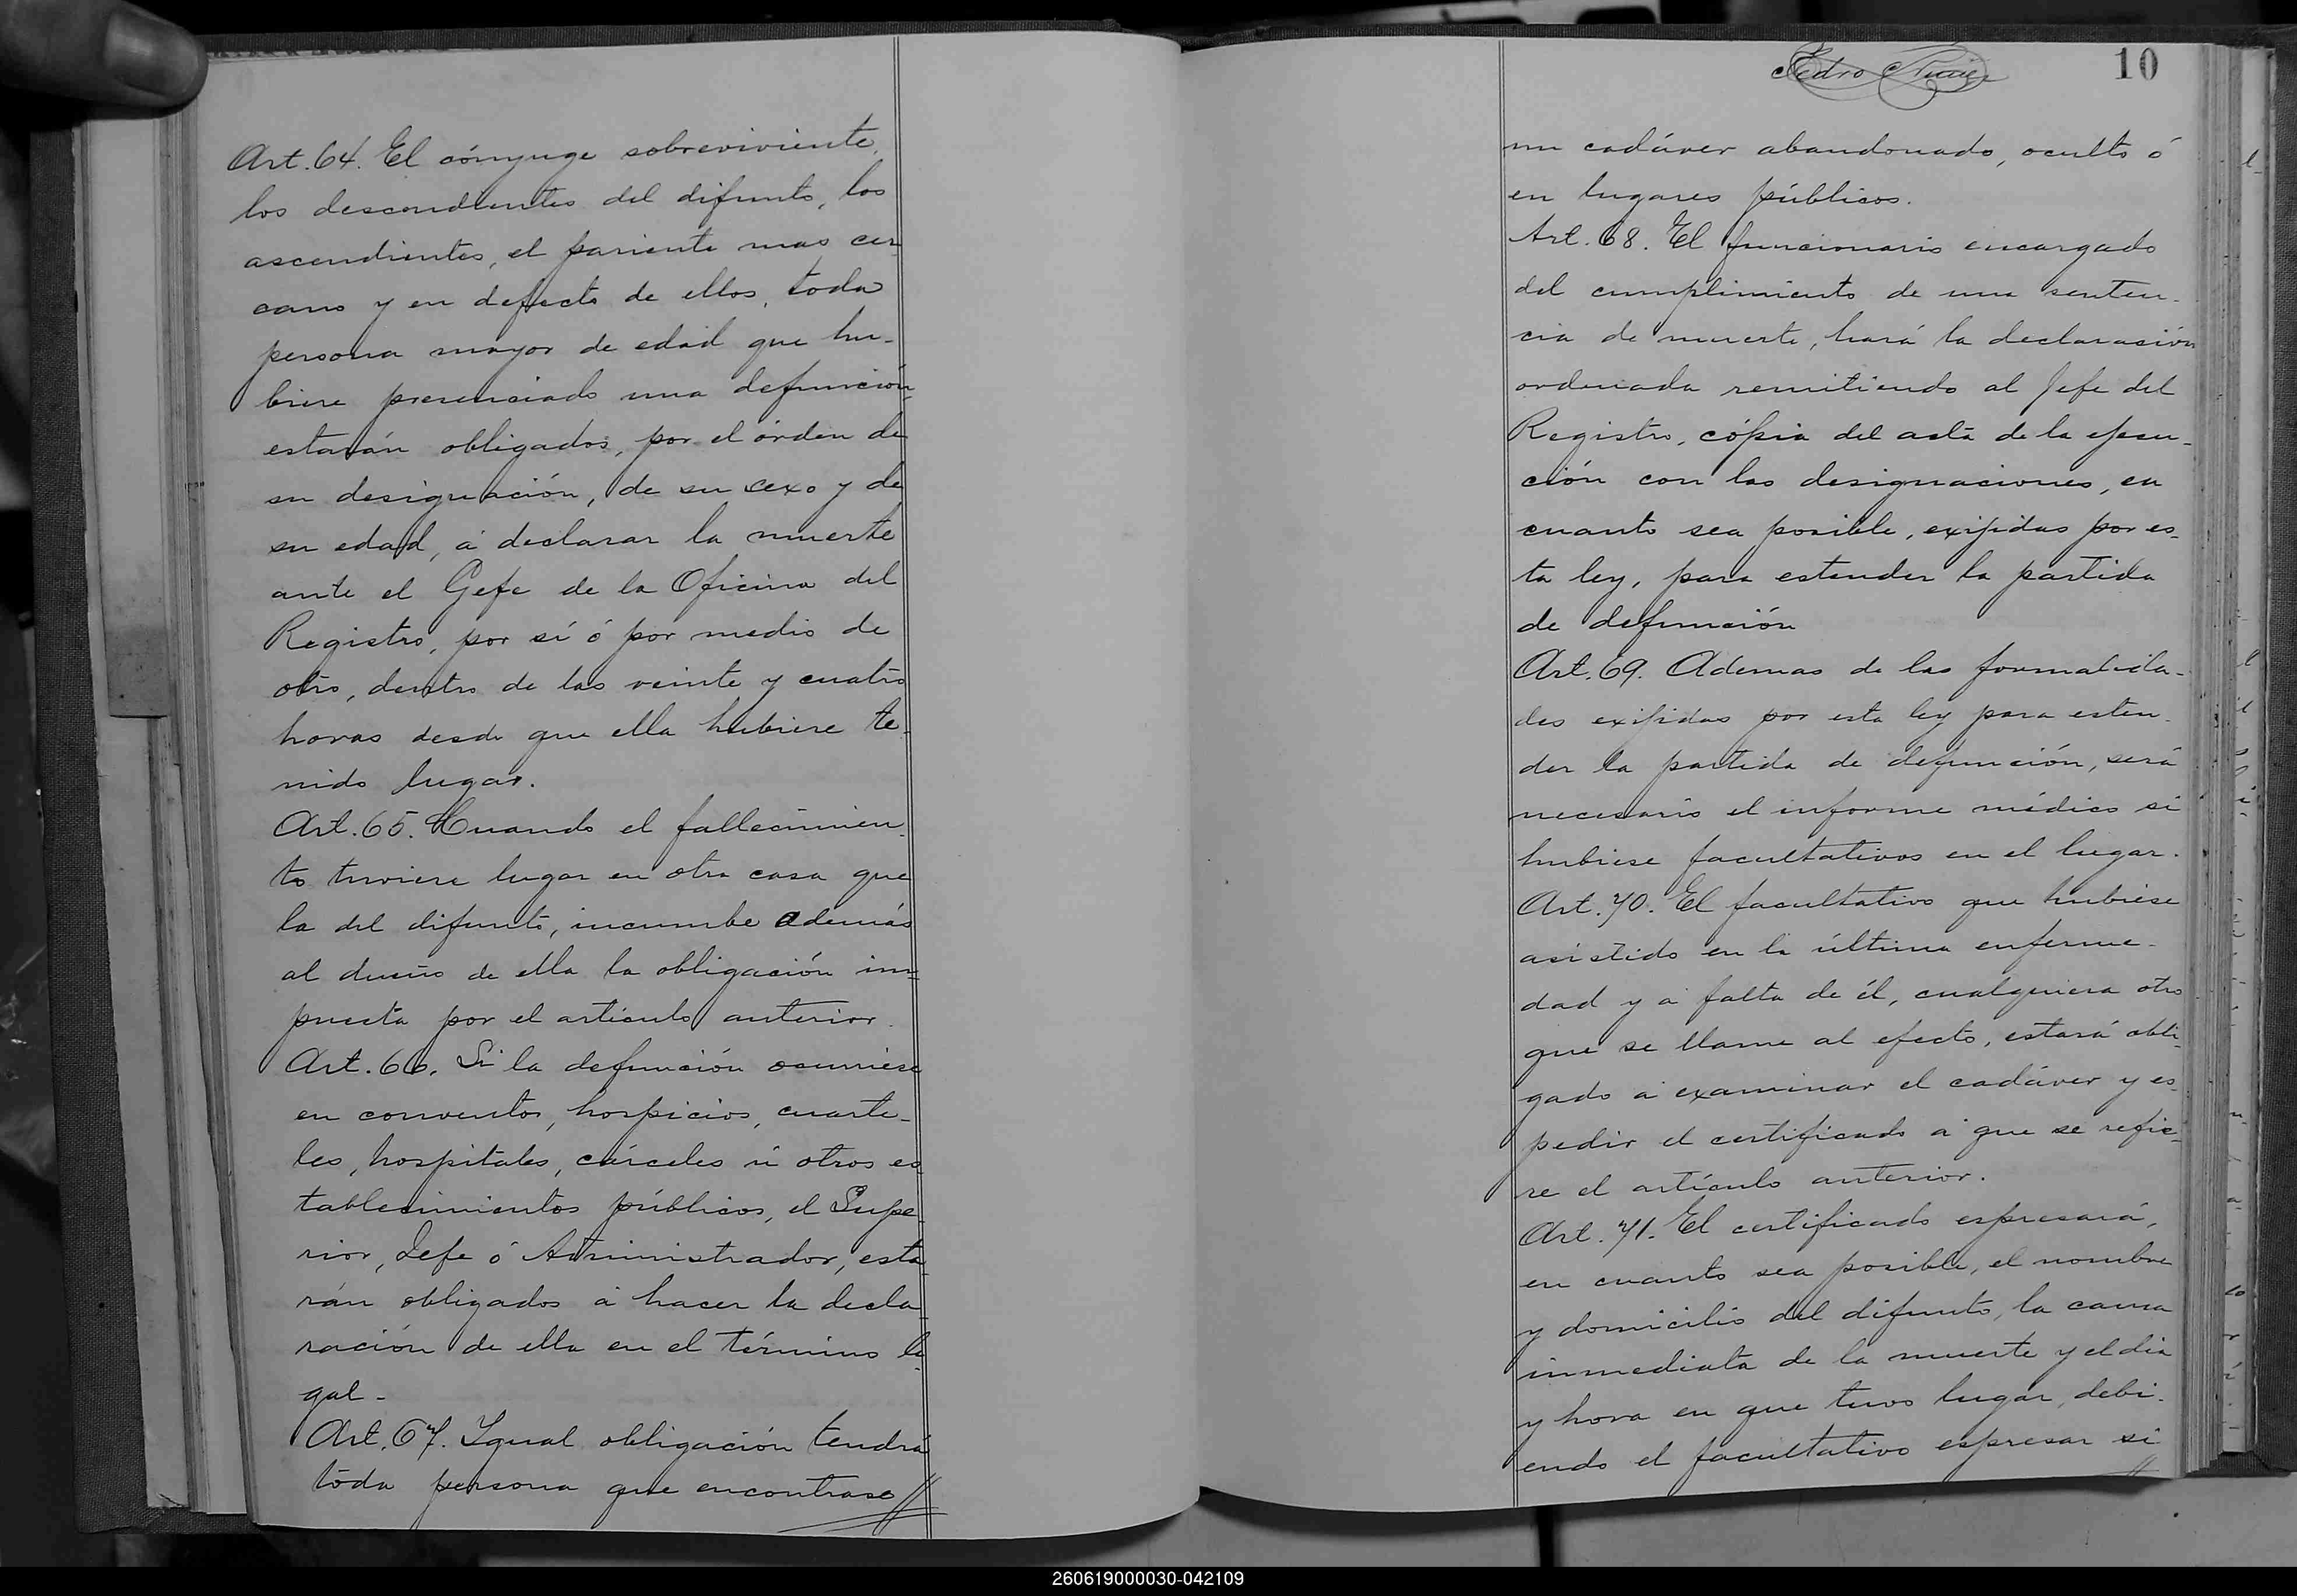 Art. 64. El cónyuge sobreviviente,
los descendientes del difunto, los
ascendientes, el pariente mas cer-
cano y en defecto de ellos, toda
persona mayor de edad que hu-
biere presenciado una defunción,
estarán obligados, por el órden de
su designación, de su sexo y de
su edad, á declarar la muerte
ante el Gefe de la Oficina del
Registro, por sí ó por medio de
otro, dentro de las veinte y cuatro
horas desde que ella hubiere te-
nido lugar.
Art. 65. Cuando el fallecimien-
to tuviere lugar en otra casa que
la del difunto, incumbe además
al dueño de ella la obligación im-
puesta por el artículo anterior.
Art. 66. Si la defunción ocurriese
en conventos, hospicios, cuarte-
les, hospitales, cárceles ú otros es-
tablecimientos públicos, el Supe-
rior, Jefe ó Administrador, esta-
rán obligados á hacer la decla-
ración de ella en el término le-
gal-
Art. 67. Igual obligación tendrá
toda persona que encontrase
Pedro
10
un cadáver abandonado, oculto ó
en lugares públicos.
Art. 68. El funcionario encargado
del cumplimiento de una senten-
cia de muerte, hará la declaración
ordenada remitiendo al Jefe del
Registro, cópia del acta de la ejecu-
ción con las designaciones, en
cuanto sea posible, exijidas por es-
ta ley, para estender la partida
de defunción
Art. 69. Ademas de las formalida-
des exijidas por esta ley para esten-
der la partida de defunción, será
necesario el informe médico si
hubiese facultativos en el lugar.
Art. 70. El facultativo que hubiese
asistido en la última enferme-
dad y á falta de él, cualquiera otro
que se llame al efecto, estará obli-
gado á examinar el cadáver y es-
pedir el certificado á que se refie-
re el artículo anterior.
Art. 71. El certificado espresará,
en cuanto sea posible, el nombre
y domicilio del difunto, la causa
inmediata de la muerte y el dia
y hora en que tuvo lugar, debi-
endo el facultativo espresar si
260619000030-042109